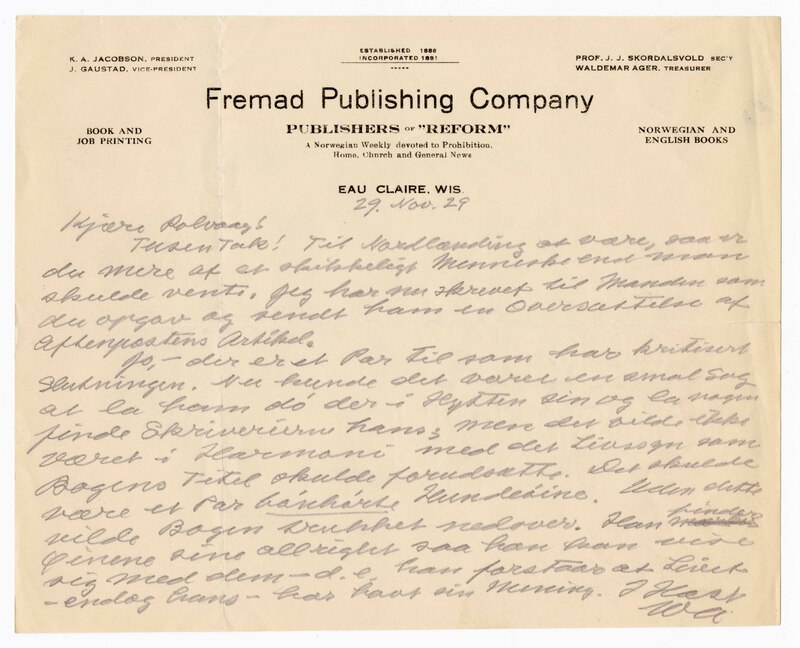 K. A. JACOBSON, PRESIDENT
J. GAUSTAD, VICE-PRESIDENT
ESTABLISHED 1886
INCORPORATED 1891
PROF. J. J. SKORDALSVOLD SEC'Y
WALDEMAR AGER, TREASURER
Fremad Publishing Company
BOOK AND
JOB PRINTING
PUBLISHERS OF "REFORM"
A Norwegian Weekly devoted to Prohibition,
Home, Church and General News
NORWEGIAN AND
ENGLISH BOOKS
EAU CLAIRE, WIS.
29. Nov. 29
Kjære Rolvaag!
Tusen Tak! Til Nordlænding at være, saa er
du mere af et skikkeligt Menneske end man
skulde vente. Jeg har nu skrevet til Manden som
du opgav og sendt ham en Oversættelse af
Aftenpostens Artikel.
Jo, - der er et Par til som har kritisert
Slutningen. Nu kunde det været en smal Sag
at la ham dø der i Hytten sin og la nogen
finde Skriverierne hans; men det vilde ikke
været i Harmoni med det Livssyn som
Bogens Titel skulde forudsætte. Det skulde
være et Par bónhórte Hundeóine. Uden dette
vilde Bogen trukket nedover. Han finder
Øinene sine allright saa han kan vise
sig med dem - d. e. han forstaar at Livet
- endog hans - har havt sin Mening. I Hast
WA.